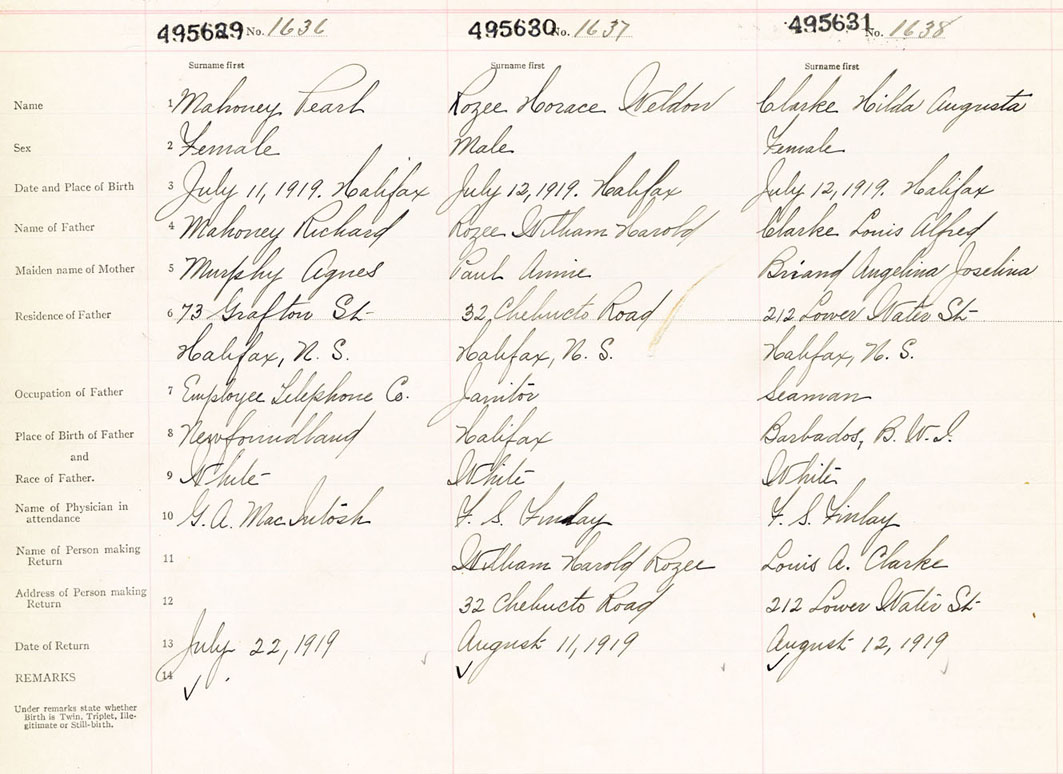 495629 No. 1636 495630 No. 1637 495631 No. 1638
Surname first Surname first Surname first
Name 1 Mahoney Pearl Rozee Horace Weldon Clarke Hilda Augusta
Sex 2 Female Male Female
Date and Place of Birth 3 July 11, 1919. Halifax July 12, 1919. Halifax July 12, 1919. Halifax
Name of Father 4 Mahoney Richard Rozee William Harold Clarke Louis Alfred
Maiden name of Mother 5 Murphy Agnes Paul Annie Briand Angelina Joselina
Residence of Father 6 73 Grafton St 32 Chebucto Road 212 Lower Water St
Halifax, N. S. Halifax, N. S. Halifax, N. S.
Occupation of Father 7 Employee Telephone Co. Janitor Seaman
Place of Birth of Father 8 Newfoundland Halifax Barbados, B. W. I.
and
Race of Father. 9 White White White
Name of Physician in
attendance 10 G. A. MacIntosh F. S. Finlay F. S. Finlay
Name of Person making
Return 11 William Harold Rozee Louis A. Clarke
Address of Person making
Return 12 32 Chebucto Road 212 Lower Water St
Date of Return 13 July 22, 1919 August 11, 1919 August 12, 1919
REMARKS 14
Under remarks state whether
Birth is Twin, Triplet, Ille-
gitimate or Still-birth.